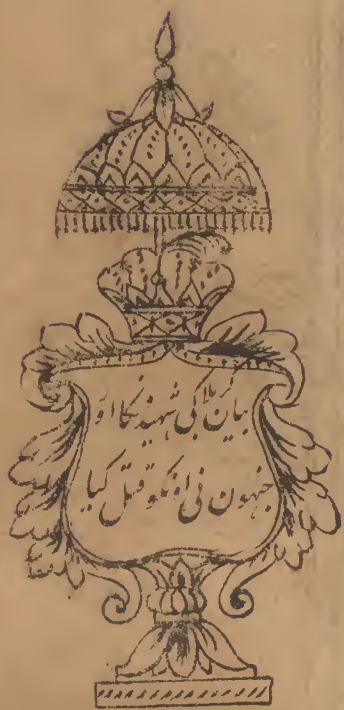 بیان کربلا کی شہیدنکا اور
جنہون نی اونکو قتل کیا